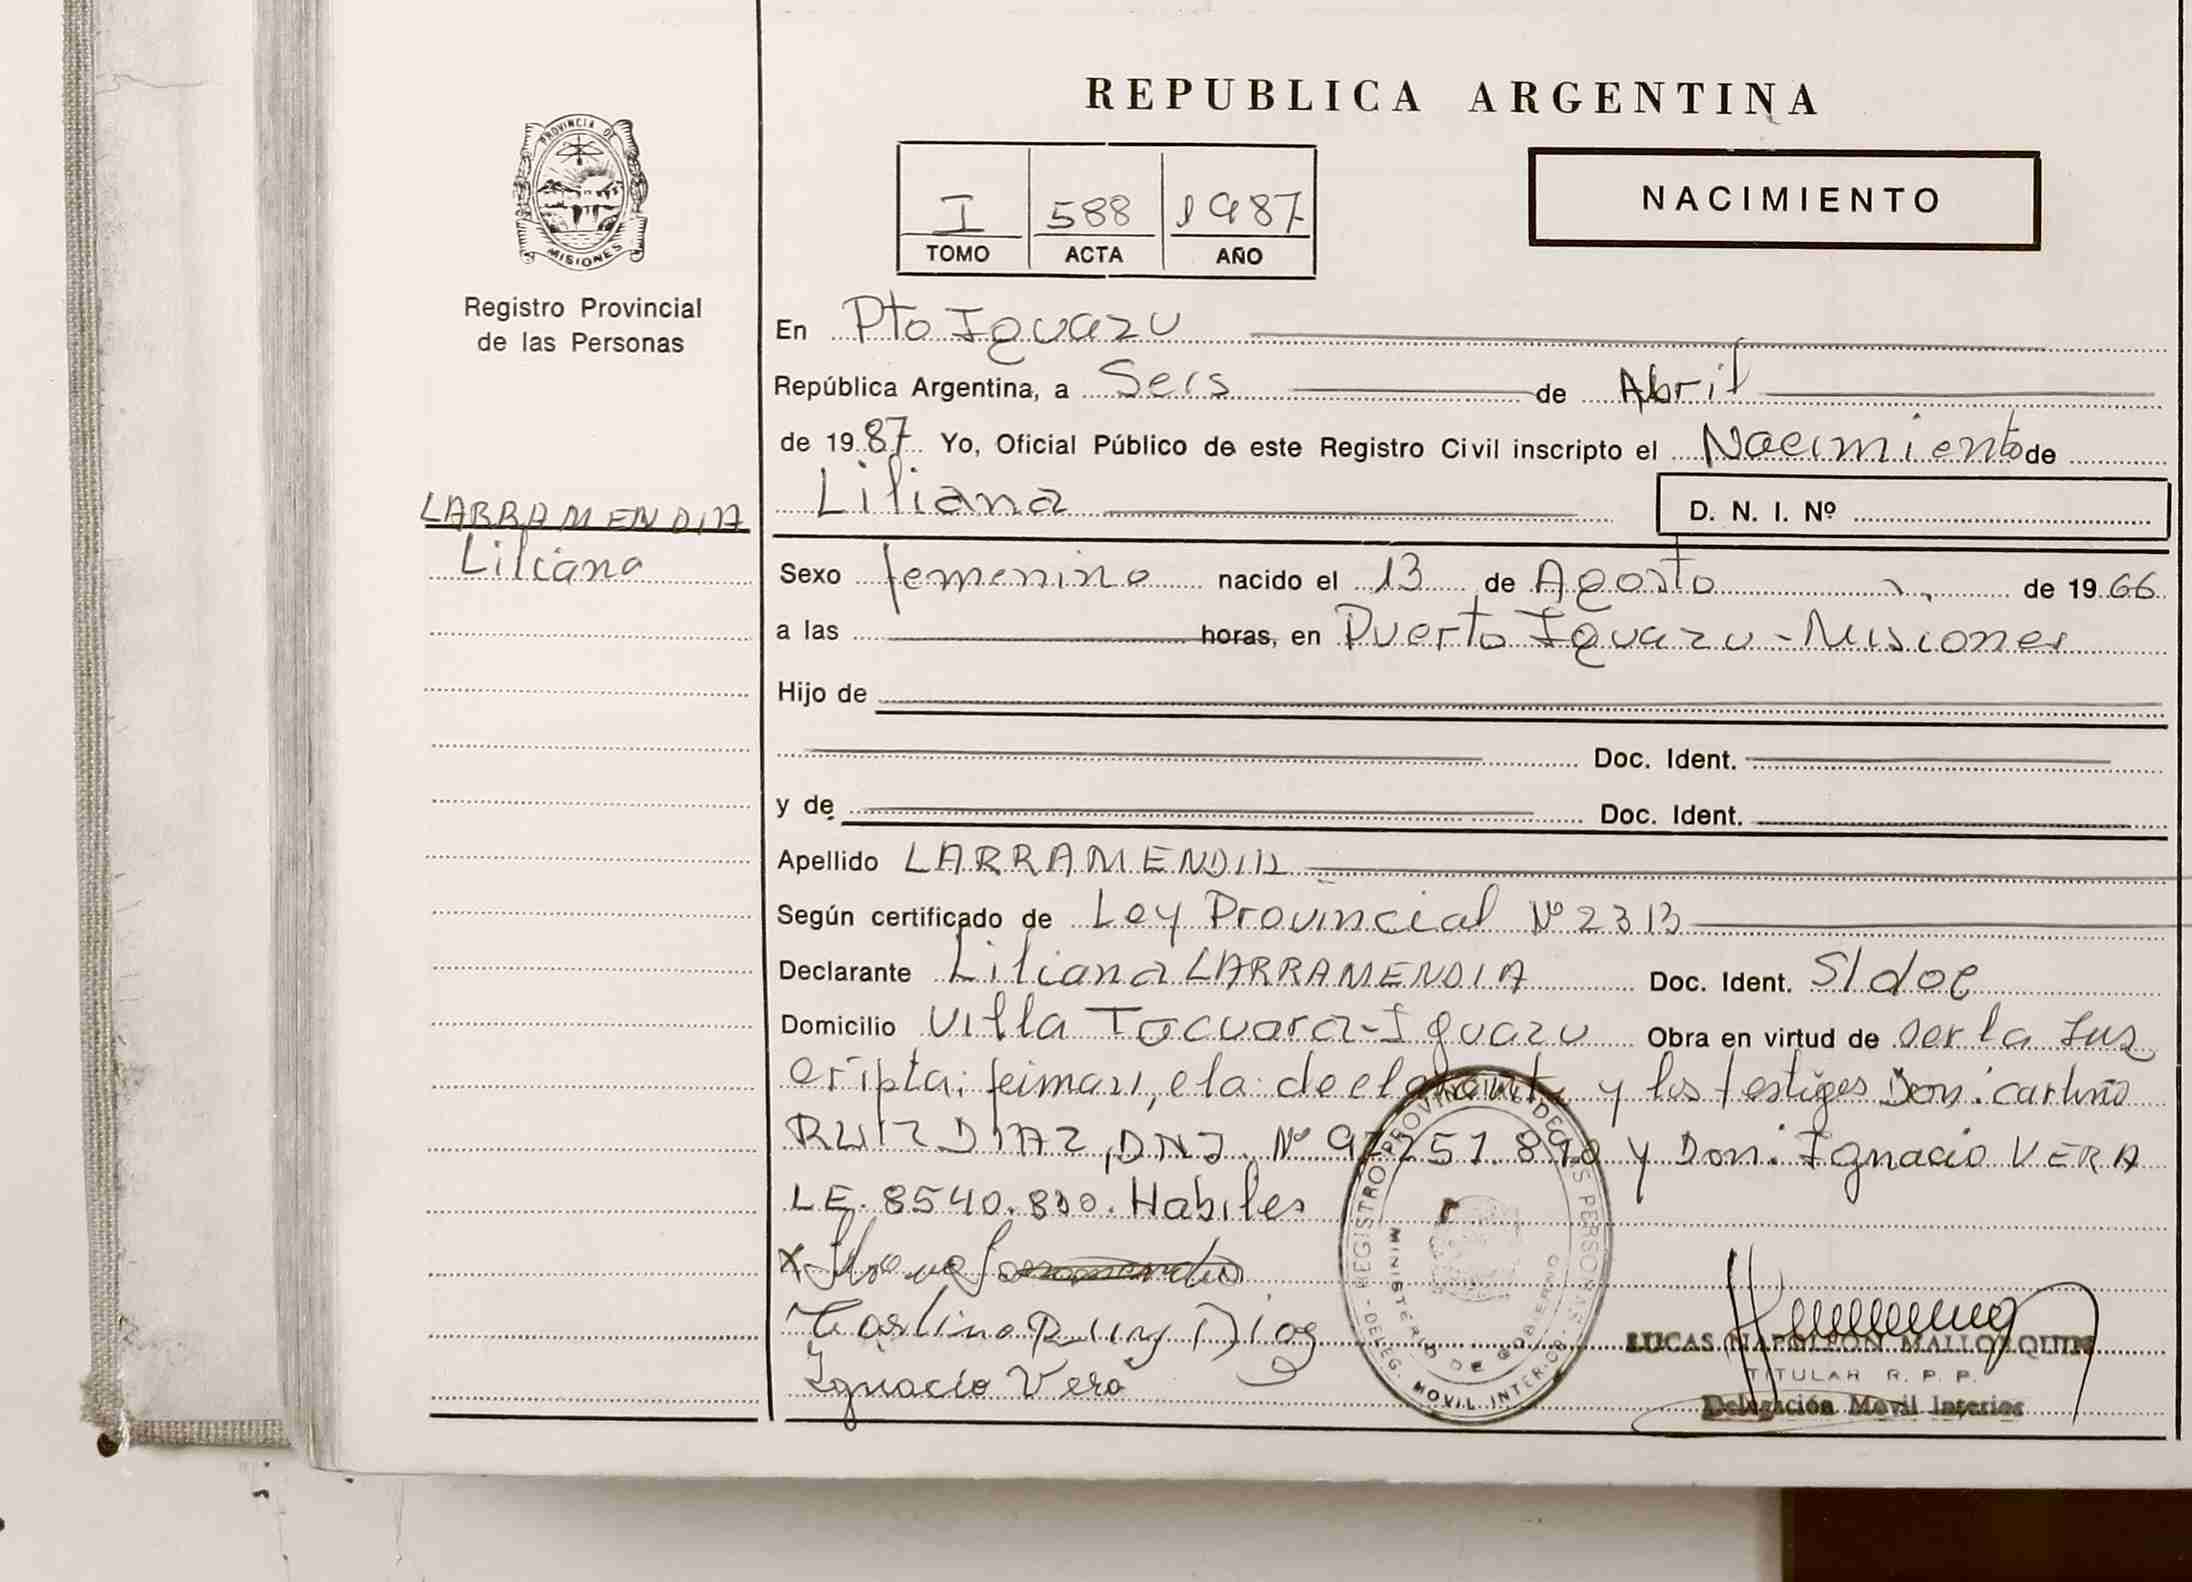 REPUBLICA ARGENTINA
PROVINCIA DE
MISIONES
Registro Provincial
de las Personas
I 588 1987
TOMO ACTA AÑO
NACIMIENTO
En Pto Iguazu
República Argentina, a Seis de Abril
de 1987 Yo, Oficial Público de este Registro Civil inscripto el Nacimiento de
LARRAMENDIA
Liliana
Liliana
D. N. I. Nº
Sexo femenino nacido el 13 de Agosto de 1966
a las horas, en Puerto Iguazu - Misiones
Hijo de
Doc. Ident.
y de Doc. Ident.
Apellido LARRAMENDIA
Según certificado de Ley Provincial Nº 2313
Declarante Liliana LARRAMENDIA Doc. Ident. S/doc
Domicilio Villa Tacuara-Iguazu Obra en virtud de ser la Ins
cripta: y los testigos Don: Carlino
RUIZ DIAZ, DNI. Nº y Don: Ignacio VERA
LE. Habiles
Carlino Ruiz Diaz
Ignacio Vera
REGISTRO PROVINCIAL DE LAS PERSONAS
MINISTERIO DE GOBIERNO
DELEG. MOVIL INTERIOR
LUCAS NAPOLEON MALLORQUIN
TITULAR R. P. P.
Delegación Movil Interior